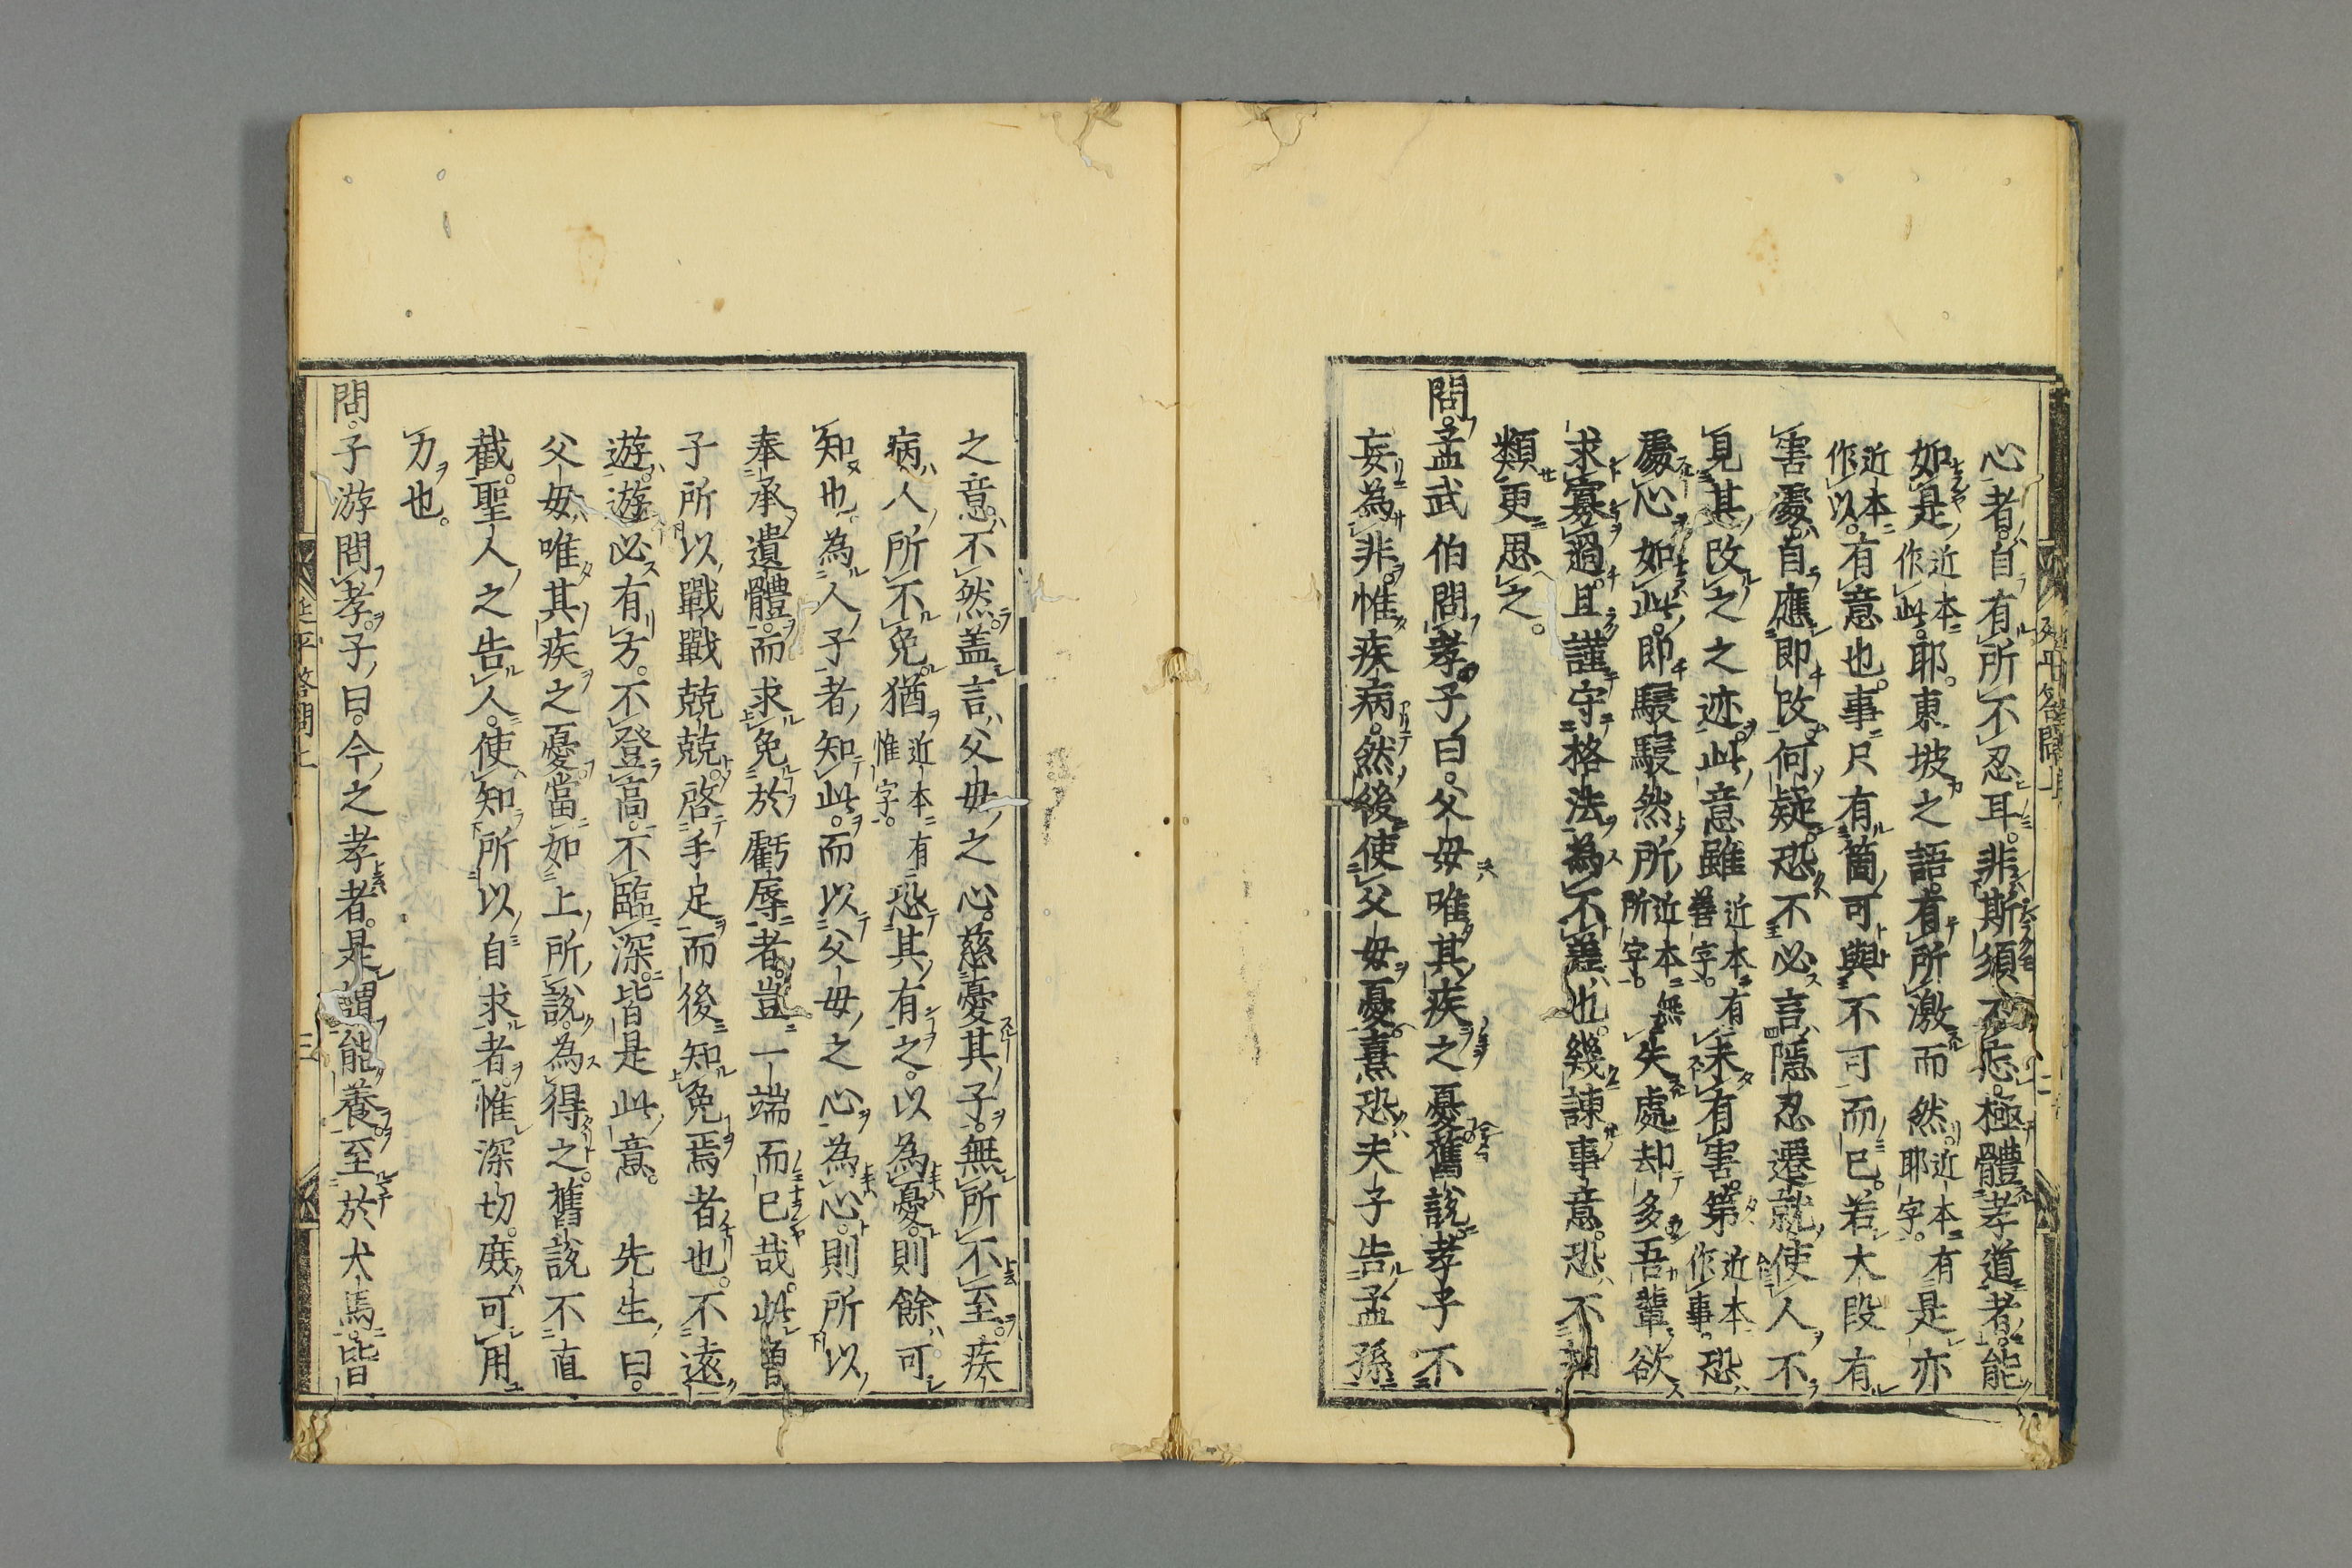 心者。自有所不忍耳。非斯須不忘。極體孝道者。能
如是近本作此。耶。東坡之語。有所激而然。近本有耶字。是亦
近本作以。有意也。事只有箇可與不可而已。若大段有
害處。自應即改。何疑。恐不必言隱忍遷就。使人不
見其改之之迹。此意雖近本有善字。未有害。第近本作事。恐
處心如此。即駸駸然所近本無所字。失處却多。吾輩欲
求寡過。且謹守格法為不差也。幾諫事意。恐不相
類。更思之。
問。孟武伯問孝。子曰。父母唯其疾之憂。舊說孝子不
妄為非。惟疾病。然後使父母憂。熹恐夫子告孟孫
之意。不然。蓋言父母之心。慈憂其子。無所不至。疾
病人所不免。猶近本有惟字。恐其有之。以為憂。則餘可
知也。為人子者。知此。而以父母之心為心。則所以
奉承遺體。而求免於虧辱者。豈一端而已哉。此曾
子所以戰戰兢兢。啓手足而後知免焉者也。不遠
遊。遊必有方。不登高。不臨深。皆是此意。　先生曰。
父母唯其疾之憂。當如上所說。為得之。舊說不直
截。聖人之告人。使知所以自求者。惟深切。庶可用
力也。
問。子游問孝。子曰。今之孝者。是謂能養。至於犬馬。皆
延平答問上
二
延平答問上
三